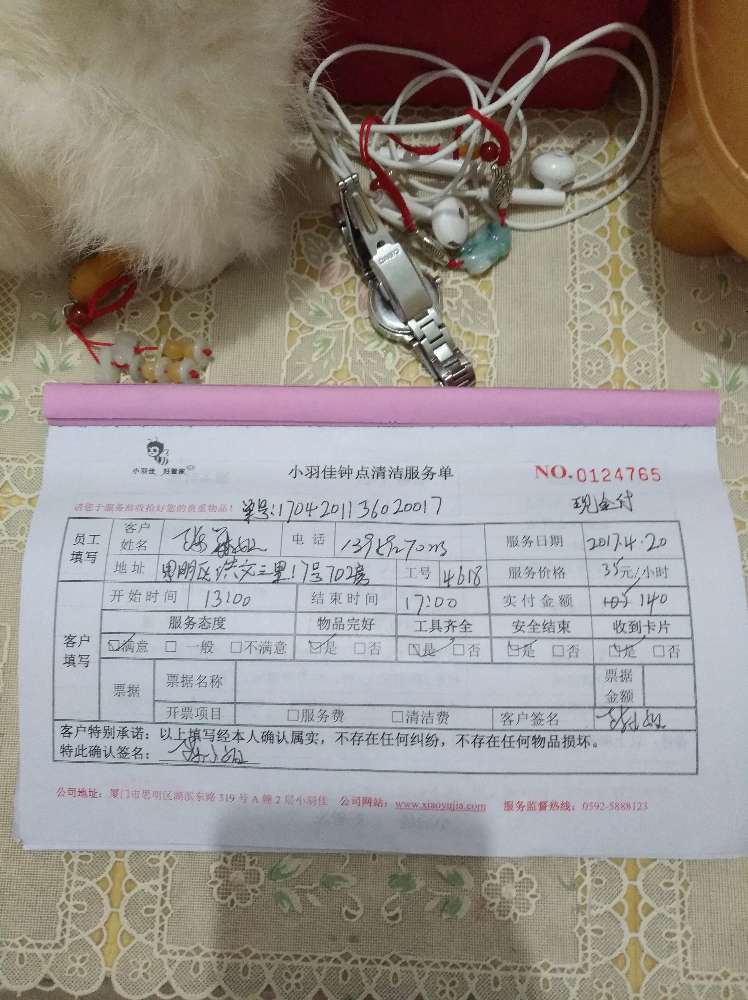 小羽佳 好管家
小羽佳钟点清洁服务单 NO.0124765
请您于服务前收拾好您的贵重物品! 单号:1704201136020017 现金付
员工填写 客户姓名 电话 服务日期 2017.4.20
地址 思明区洪文三里17号702房 工号 4618 服务价格 35元/小时
客户填写 开始时间 13:00 结束时间 17:00 实付金额 105 140
服务态度 物品完好 工具齐全 安全结束 收到卡片
☑满意 □一般 □不满意 ☑是 □否 ☑是 □否 ☑是 □否 ☑是 □否
票据 票据名称 票据金额
开票项目 □服务费 □清洁费 客户签名
客户特别承诺:以上填写经本人确认属实,不存在任何纠纷,不存在任何物品损坏。
特此确认签名:
公司地址:厦门市思明区湖滨东路 319 号 A 幢 2 层小羽佳 公司网站:www.xiaoyujia.com 服务监督热线:0592-5888123
CASIO